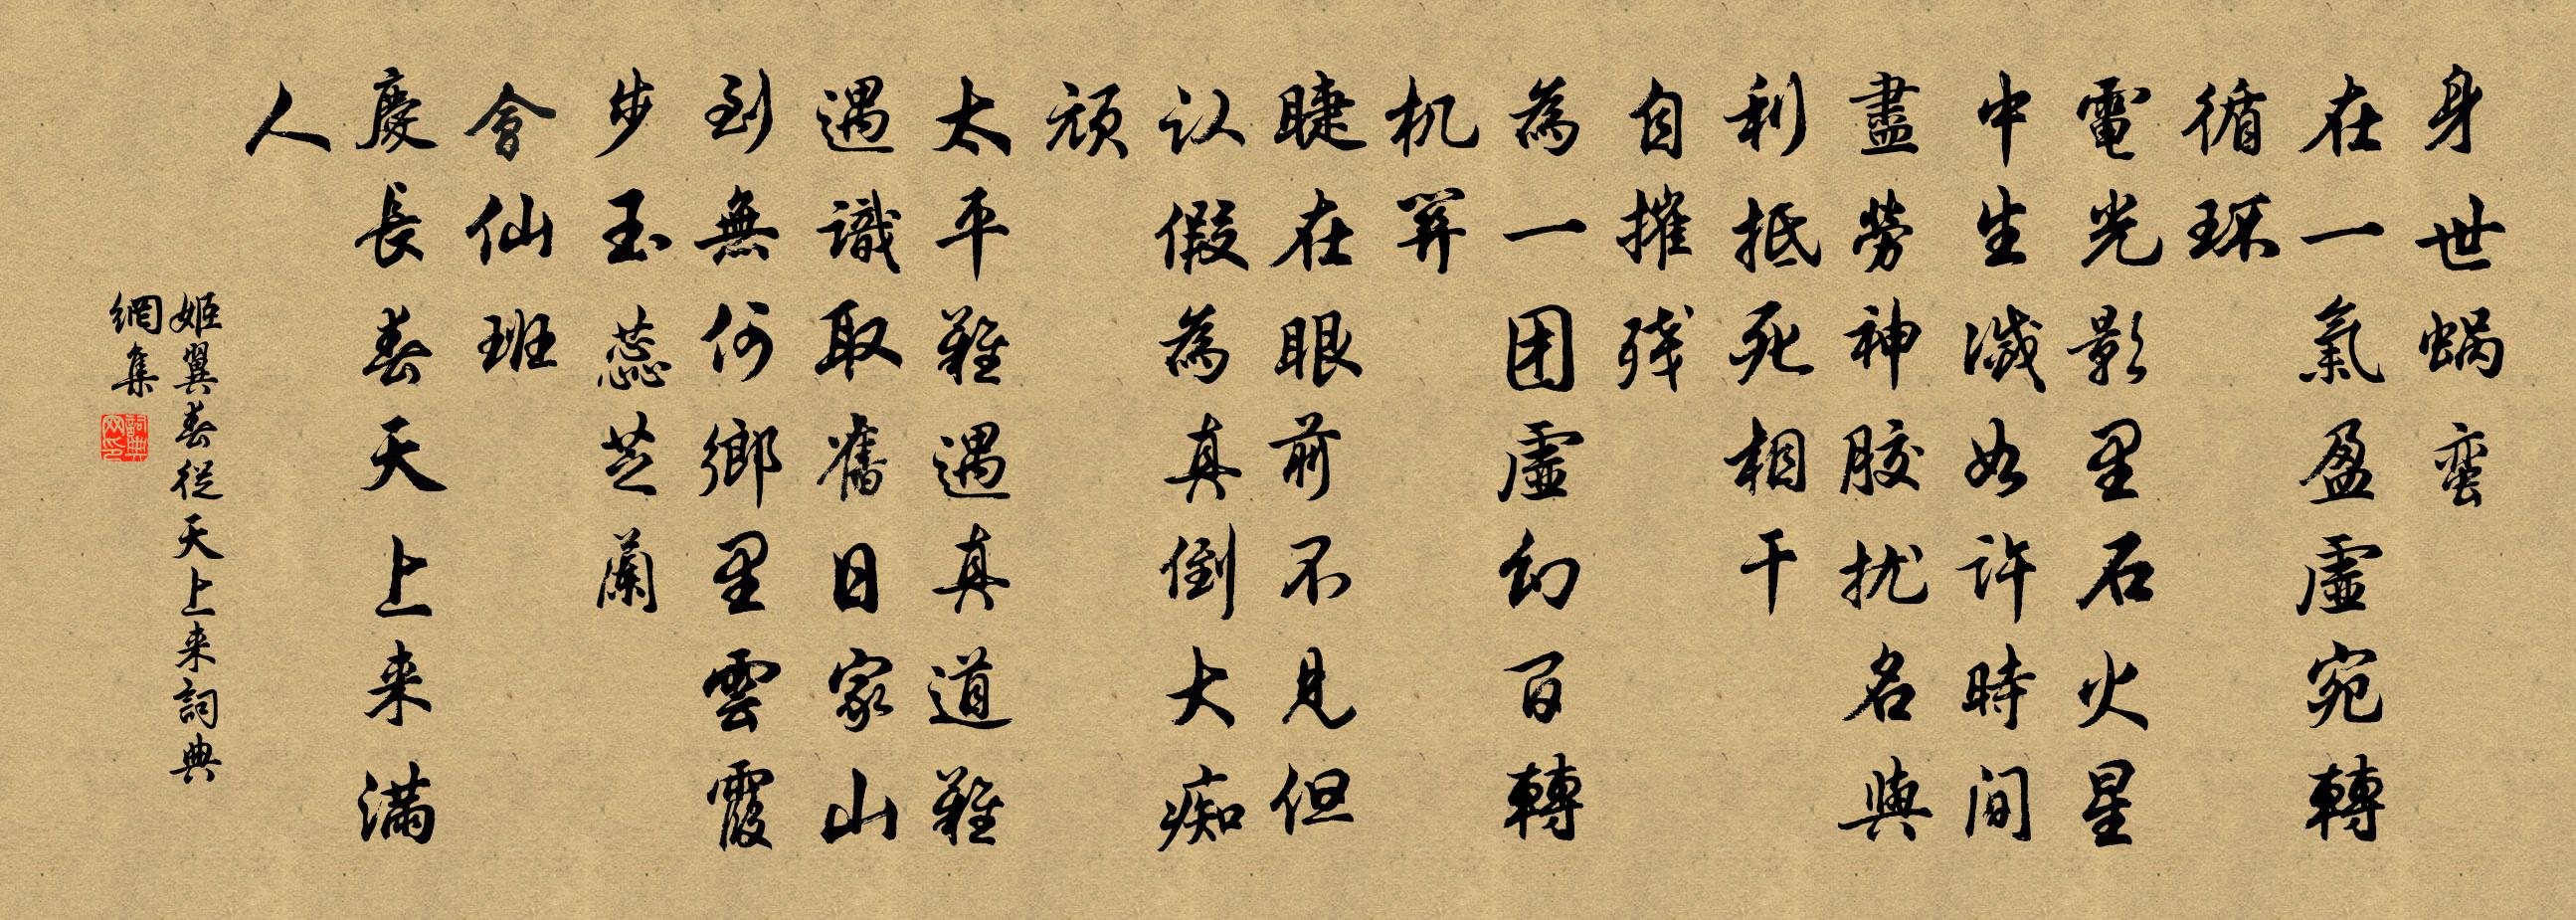 身世蜗蛮
在一氣盈虛宛轉
循环
電光影里石火星
中生滅如許時间
盡勞神胶扰名與
利抵死相干
自摧残
為一团虛幻百轉
机關
睫在眼前不見但
认假為真倒大痴
頑
太平難遇真道難
遇識取舊日家山
到無何鄉里雲霞
步玉蕊芝蘭
會仙班
慶長春天上来满
人
姬翼春從天上来詞典
網集
詞典
网印